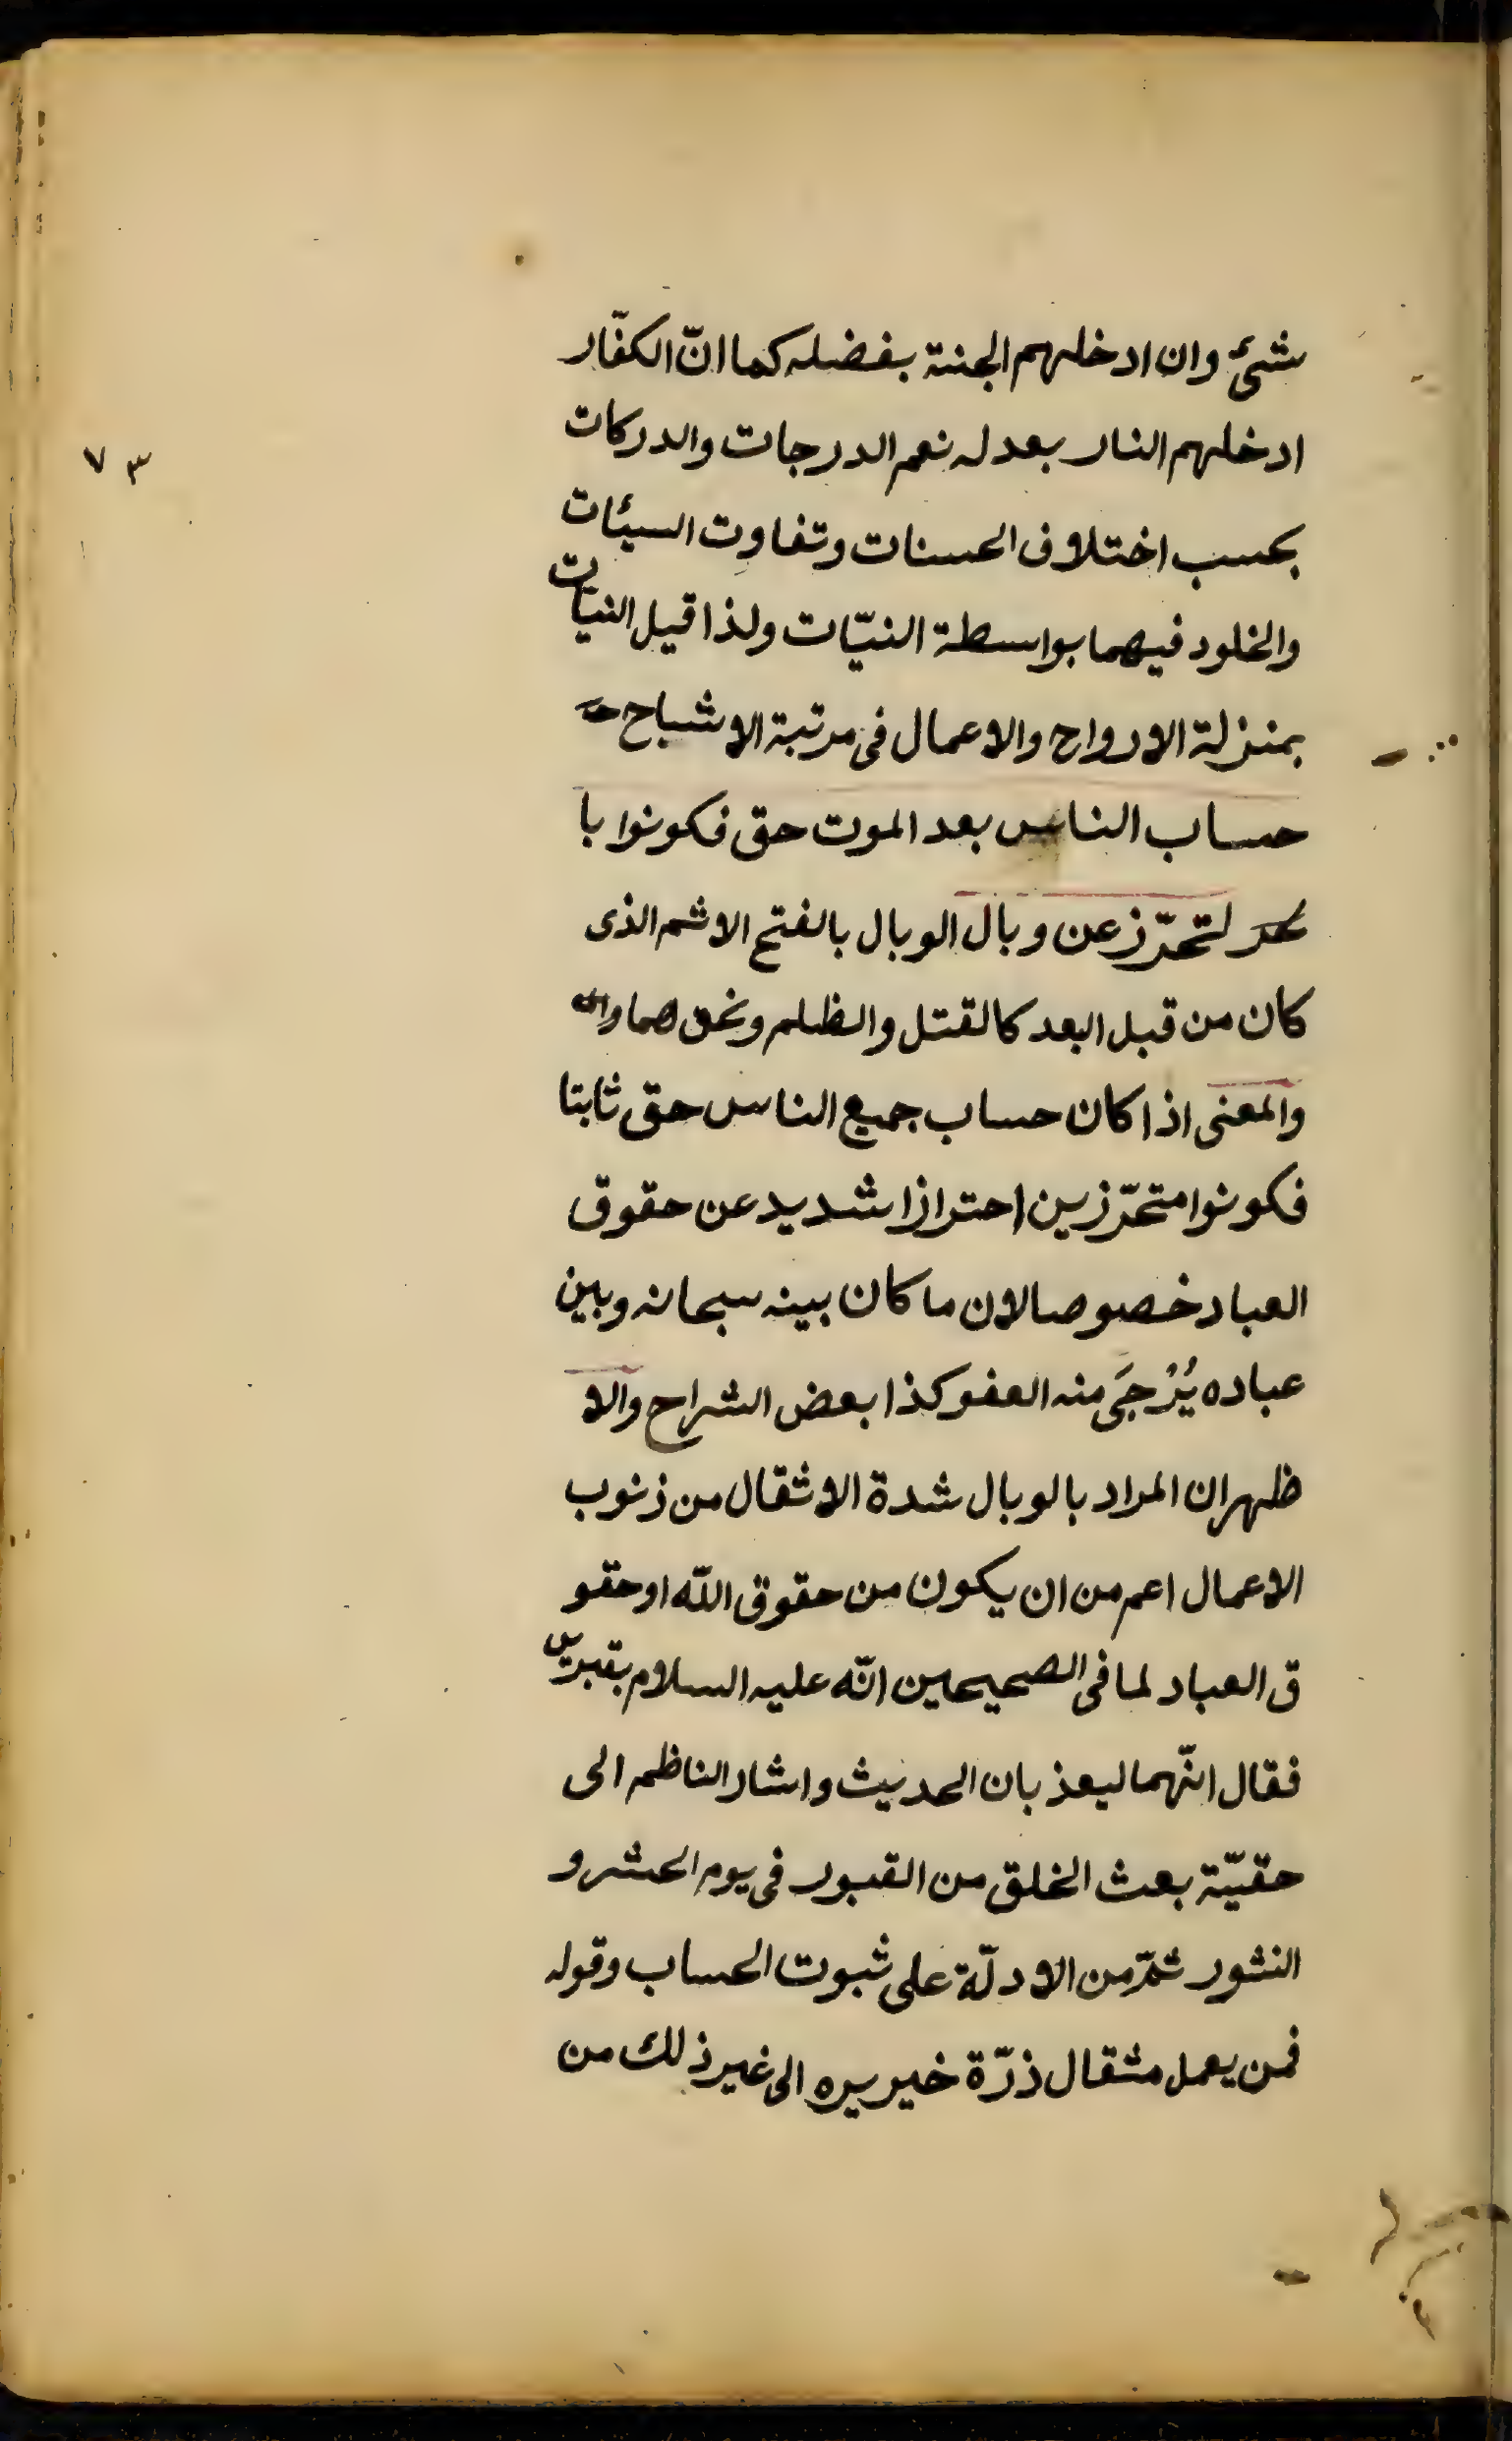 شئ وان ادخلهم الجنة بفضله كما انّ الكفّار
ادخلهم النار بعدله نعم الدرجات والدركات
بحسب اختلاف الحسنات وتفاوت السيئات
والخلود فيهما بواسطة النيّات ولذا قيل النيات
بمنزلة الارواح والاعمال فى مرتبة الاشباح
حساب الناس بعد الموت حق فكونوا با
لتحرّز عن وبال الوبال بالفتح الاثم الذى
كان من قبل البعد كالقتل والظلم ونحوهما
والمعنى اذا كان حساب جميع الناس حق ثابتا
فكونوا متحرّزين احترازا شديد عن حقوق
العباد خصوصا لان ما كان بينه سبحانه وبين
عباده يُرْجَى منه العفو كذا بعض الشراح والا
ظهر ان المراد بالوبال شدة الاثقال من ذنوب
الاعمال اعم من ان يكون من حقوق اللّه او حقو
ق العباد لما فى الصحيحين انّه عليه السلام بقبرين
فقال انّهما ليعذبان الحديث واشار الناظم الى
حقيّة بعث الخلق من القبور فى يوم الحشر و
النشور ثمّ من الادلّة على ثبوت الحساب وقوله
فمن يعمل مثقال ذرّة خير يره الى غير ذلك من
٧٣